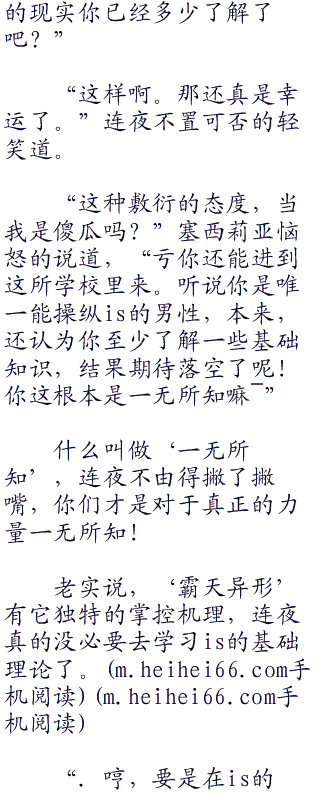 的现实你已经多少了解了
吧？”
“这样啊。那还真是幸
运了。”连夜不置可否的轻
笑道。
“这种敷衍的态度，当
我是傻瓜吗？”塞西莉亚恼
怒的说道，“亏你还能进到
这所学校里来。听说你是唯
一能操纵is的男性，本来，
还认为你至少了解一些基础
知识，结果期待落空了呢！
你这根本是一无所知嘛¯”
什么叫做‘一无所
知’，连夜不由得撇了撇
嘴，你们才是对于真正的力
量一无所知！
老实说，‘霸天异形’
有它独特的掌控机理，连夜
真的没必要去学习is的基础
理论了。(m.heihei66.com手
机阅读)(m.heihei66.com手
机阅读)
“．哼，要是在is的